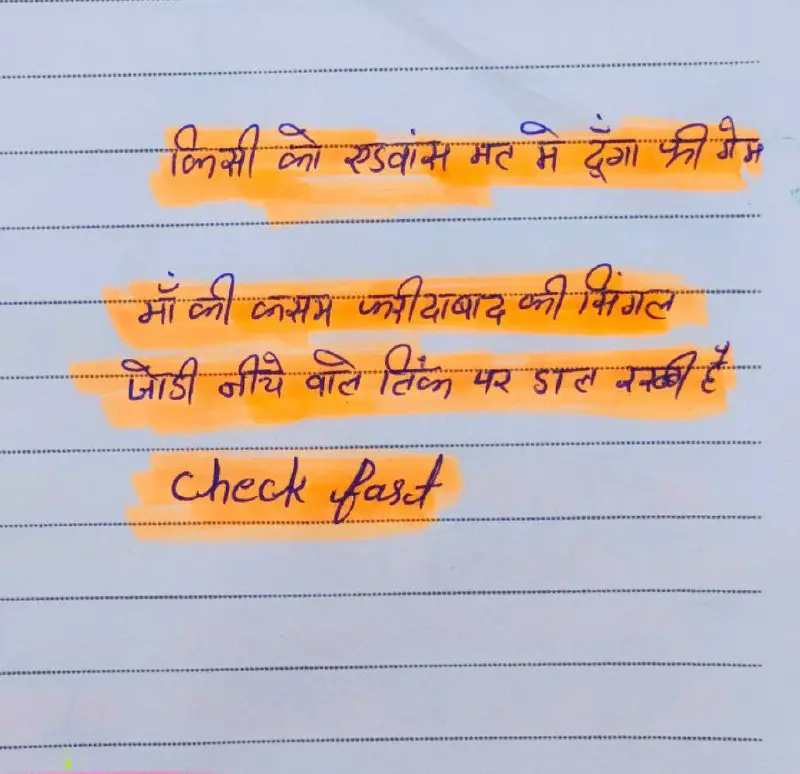 किसी को एडवांस मत मे दूँगा फ्री गेम
माँ की कसम फरीदाबाद की सिंगल
जोडी नीचे वाले लिंक पर डाल रखी है
check fast